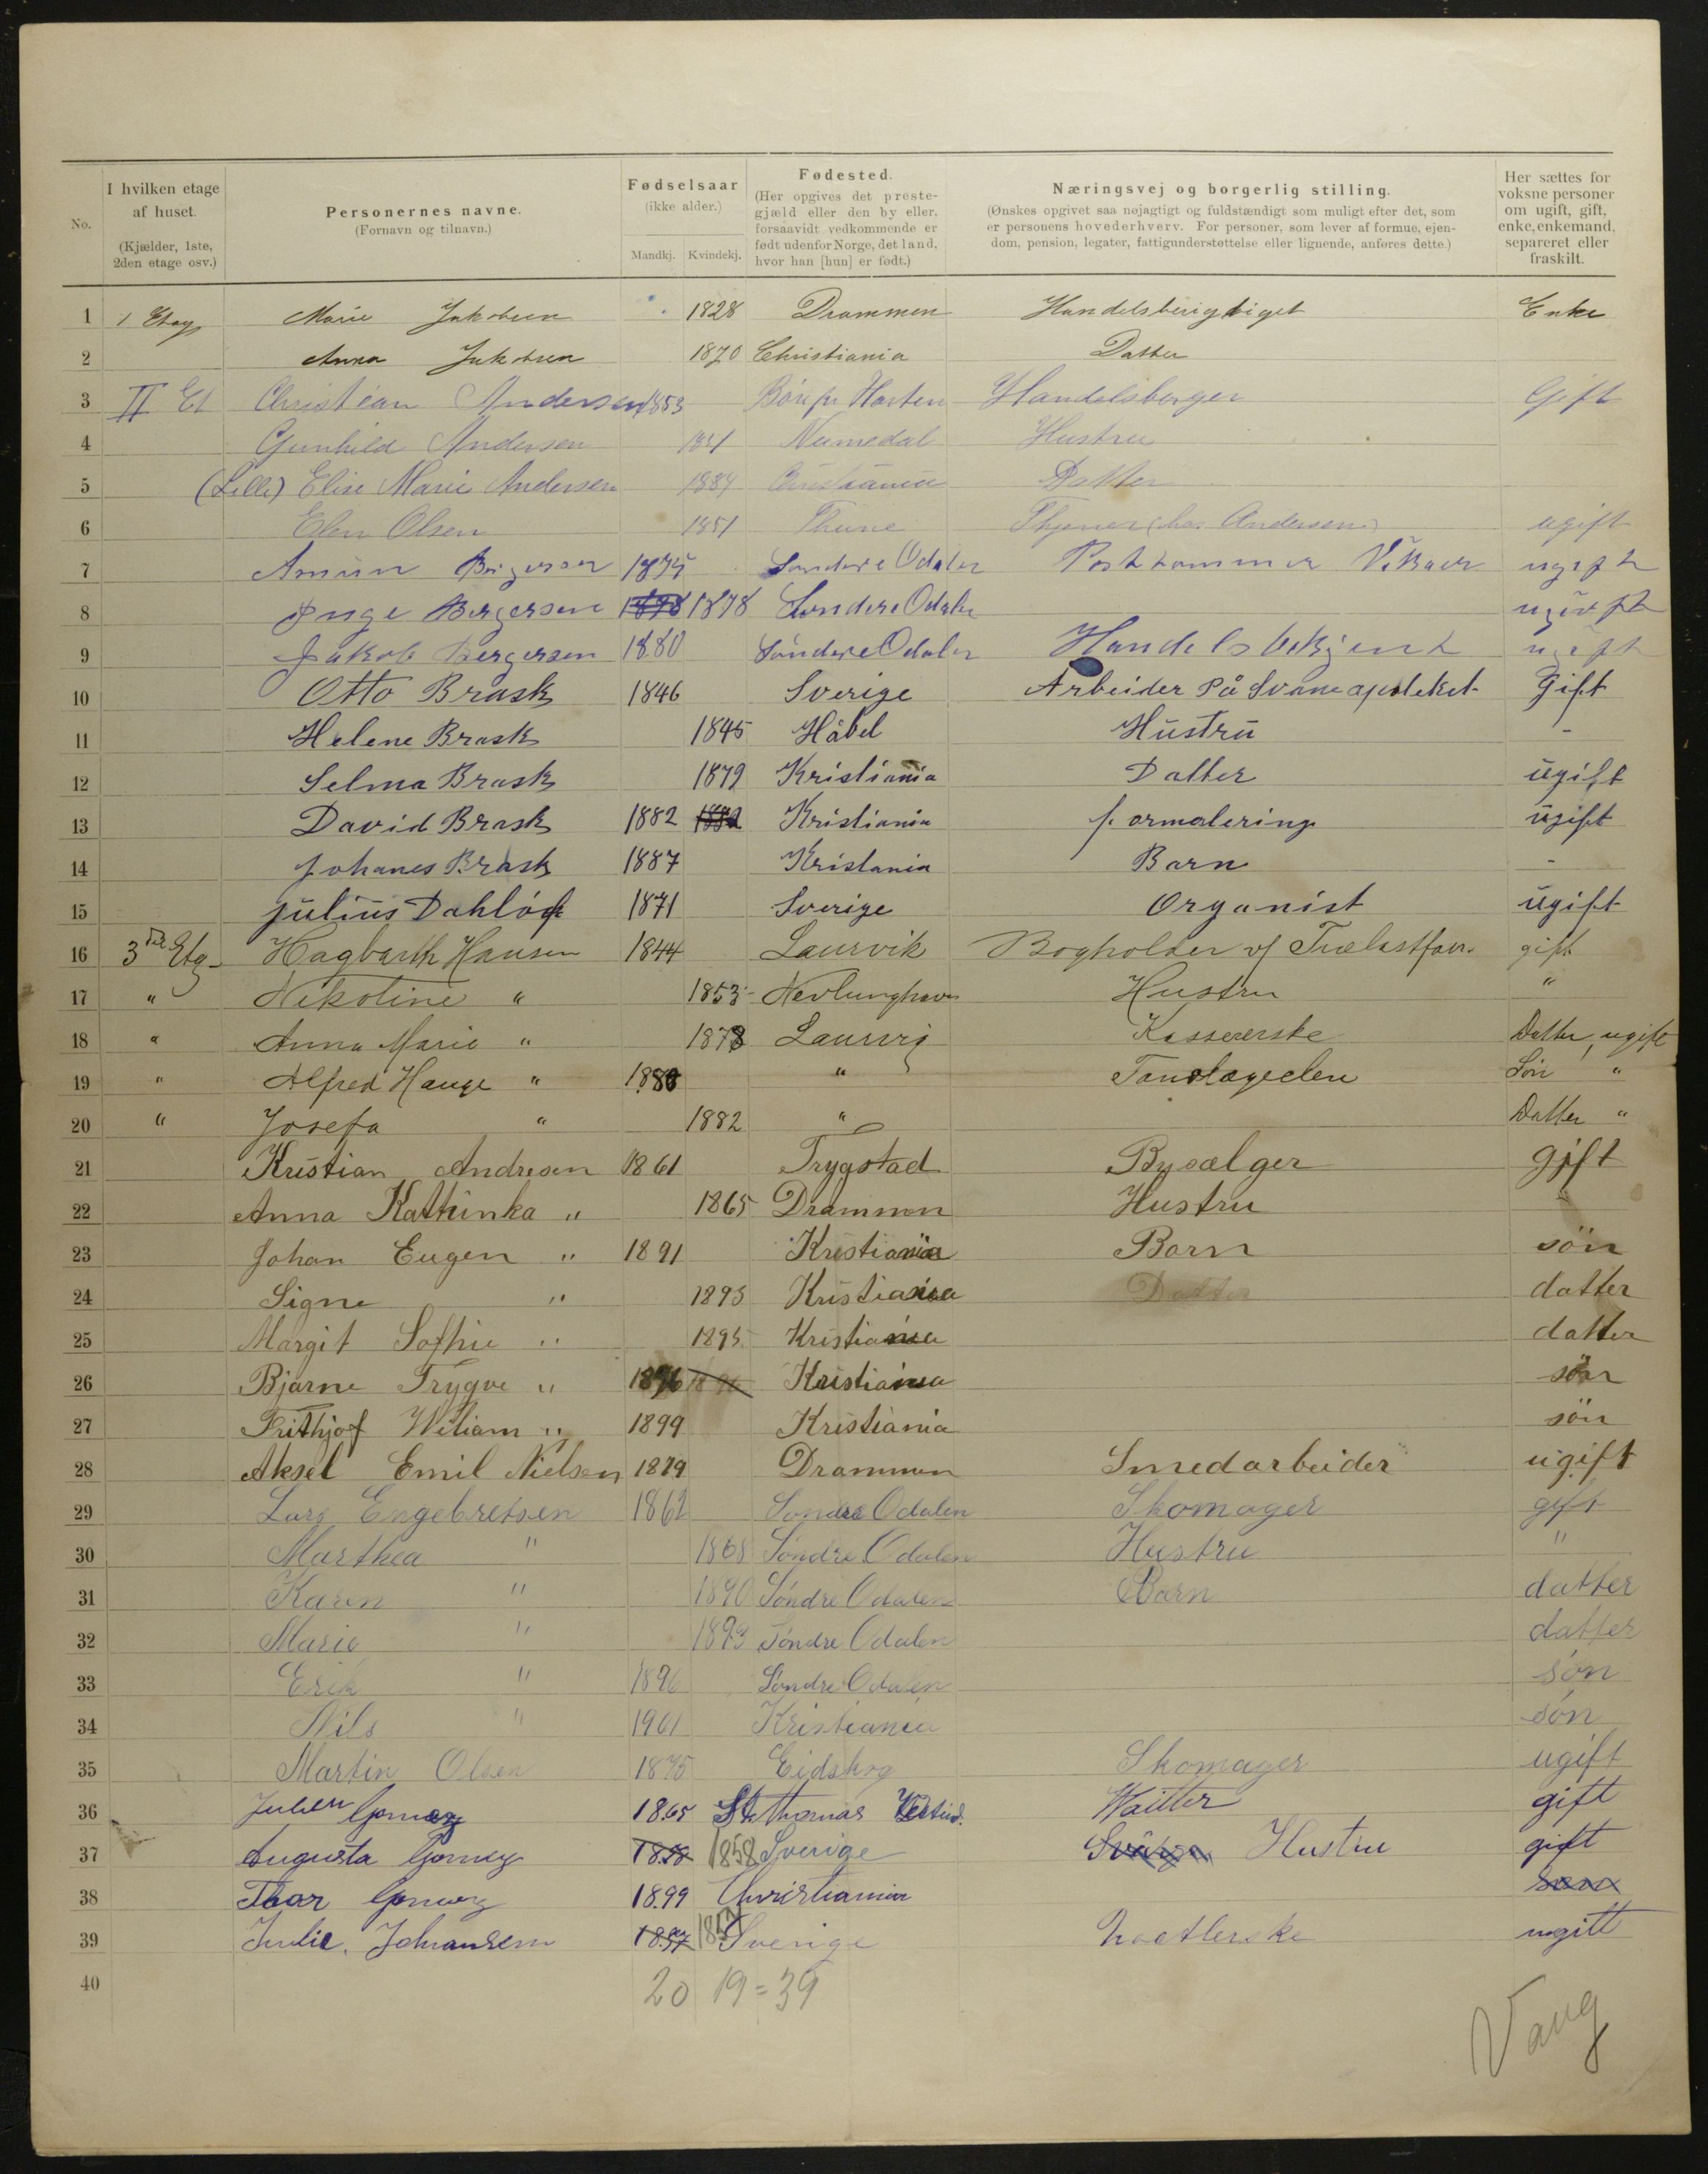 No. I hvilken etage af huset. (Kjælder, 1ste, 2den etage osv.) Personernes navne. (Fornavn og tilnavn.) Fødselsaar (ikke alder.) Mandkj. Kvindekj. Fødested. (Her opgives det prestegjæld eller den by eller, forsaavidt vedkommende er født udenfor Norge, det land, hvor han [hun] er født.) Næringsvej og borgerlig stilling. (Ønskes opgivet saa nøjagtigt og fuldstændigt som muligt efter det, som er personens hovederhverv. For personer, som lever af formue, ejendom, pension, legater, fattigunderstøttelse eller lignende, anføres dette.) Her sættes for voksne personer om ugift, gift, enke, enkemand, separeret eller fraskilt.
1 1 Etag Marie Jakobsen 1828 Drammen Handelsberigtiget Enke
2 Anna Jakobsen 1870 Christiania Datter
3 II Et Christian Andersen 1853 Handelsborger Gift
4 Gunhild Andersen 1851 Numedal Hustru
5 (Lilli) Elise Marie Andersen 1884 Christiania Datter
6 Elen Olsen 1851 Thune Thjener (hos Andersen) ugift
7 Bergersen 1874 Sondere Odalen ugift
8 Inge Bergersen 1878 1878 Sondere Odalen ugivft
9 Jakob Bergersen 1880 Søndere Odalen Handelsbetjent ugift
10 Otto Brask 1846 Sverige Arbeider På Svaneapoteket Gift
11 Helene Brask 1845 Håbel Hustru -
12 Selma Brask 1879 Kristiania Datter ugift
13 David Brask 1882 1882 Kristiania formalering ugift
14 Johanes Brask 1887 Kristania Barn -
15 Julius Dahlöf 1871 Sverige Organist ugift
16 3die Etg Hagbarth Hansen 1844 Laurvik Bogholder v/ Trælastforr. gift
17 " Nikoline " 1853 Nevlunghavn Hustru "
18 " Anna Marie " 1878 Laurvig Kassererske Datter, ugift
19 " Alfred Hauge " 1880 " Tandlægeelev Søn "
20 " Josefa " 1882 " Datter "
21 Kristian Andresen 1861 Trygstad Bysælger gift
22 Anna Kathinka " 1865 Drammen Hustru
23 Johan Eugen " 1891 Kristiania Barn søn
24 Signe " 1893 Kristiania Datter datter
25 Margit Sofhie " 1895 Kristiania datter
26 Bjarne Trygve " 1896 1896 Kristiania søn
27 Frithjof Wiliam " 1899 Kristiania søn
28 Aksel Emil Nielsen 1879 Drammen Smedarbeider ugift
29 Lars Engebretsen 1862 Søndre Odalen Skomager gift
30 Marthea " 1868 Søndre Odalen Hustru "
31 Karen " 1890 Søndre Odalen Barn datter
32 Marie " 1893 Søndre Odalen datter
33 Erik " 1896 Søndre Odalen søn
34 Nils " 1901 Kristiania søn
35 Martin Olsen 1875 Eidskog Skomager ugift
36 Julien Gomez 1865 St. Thomas Vestind. Waitter gift
37 Augusta Gomez 1858 1858 Sverige Hustru gift
38 Thor Gomez 1899 Christiania søn
39 Julie Johansen 1857 1857 Sverige ugift
40 20 19 = 39
Vang